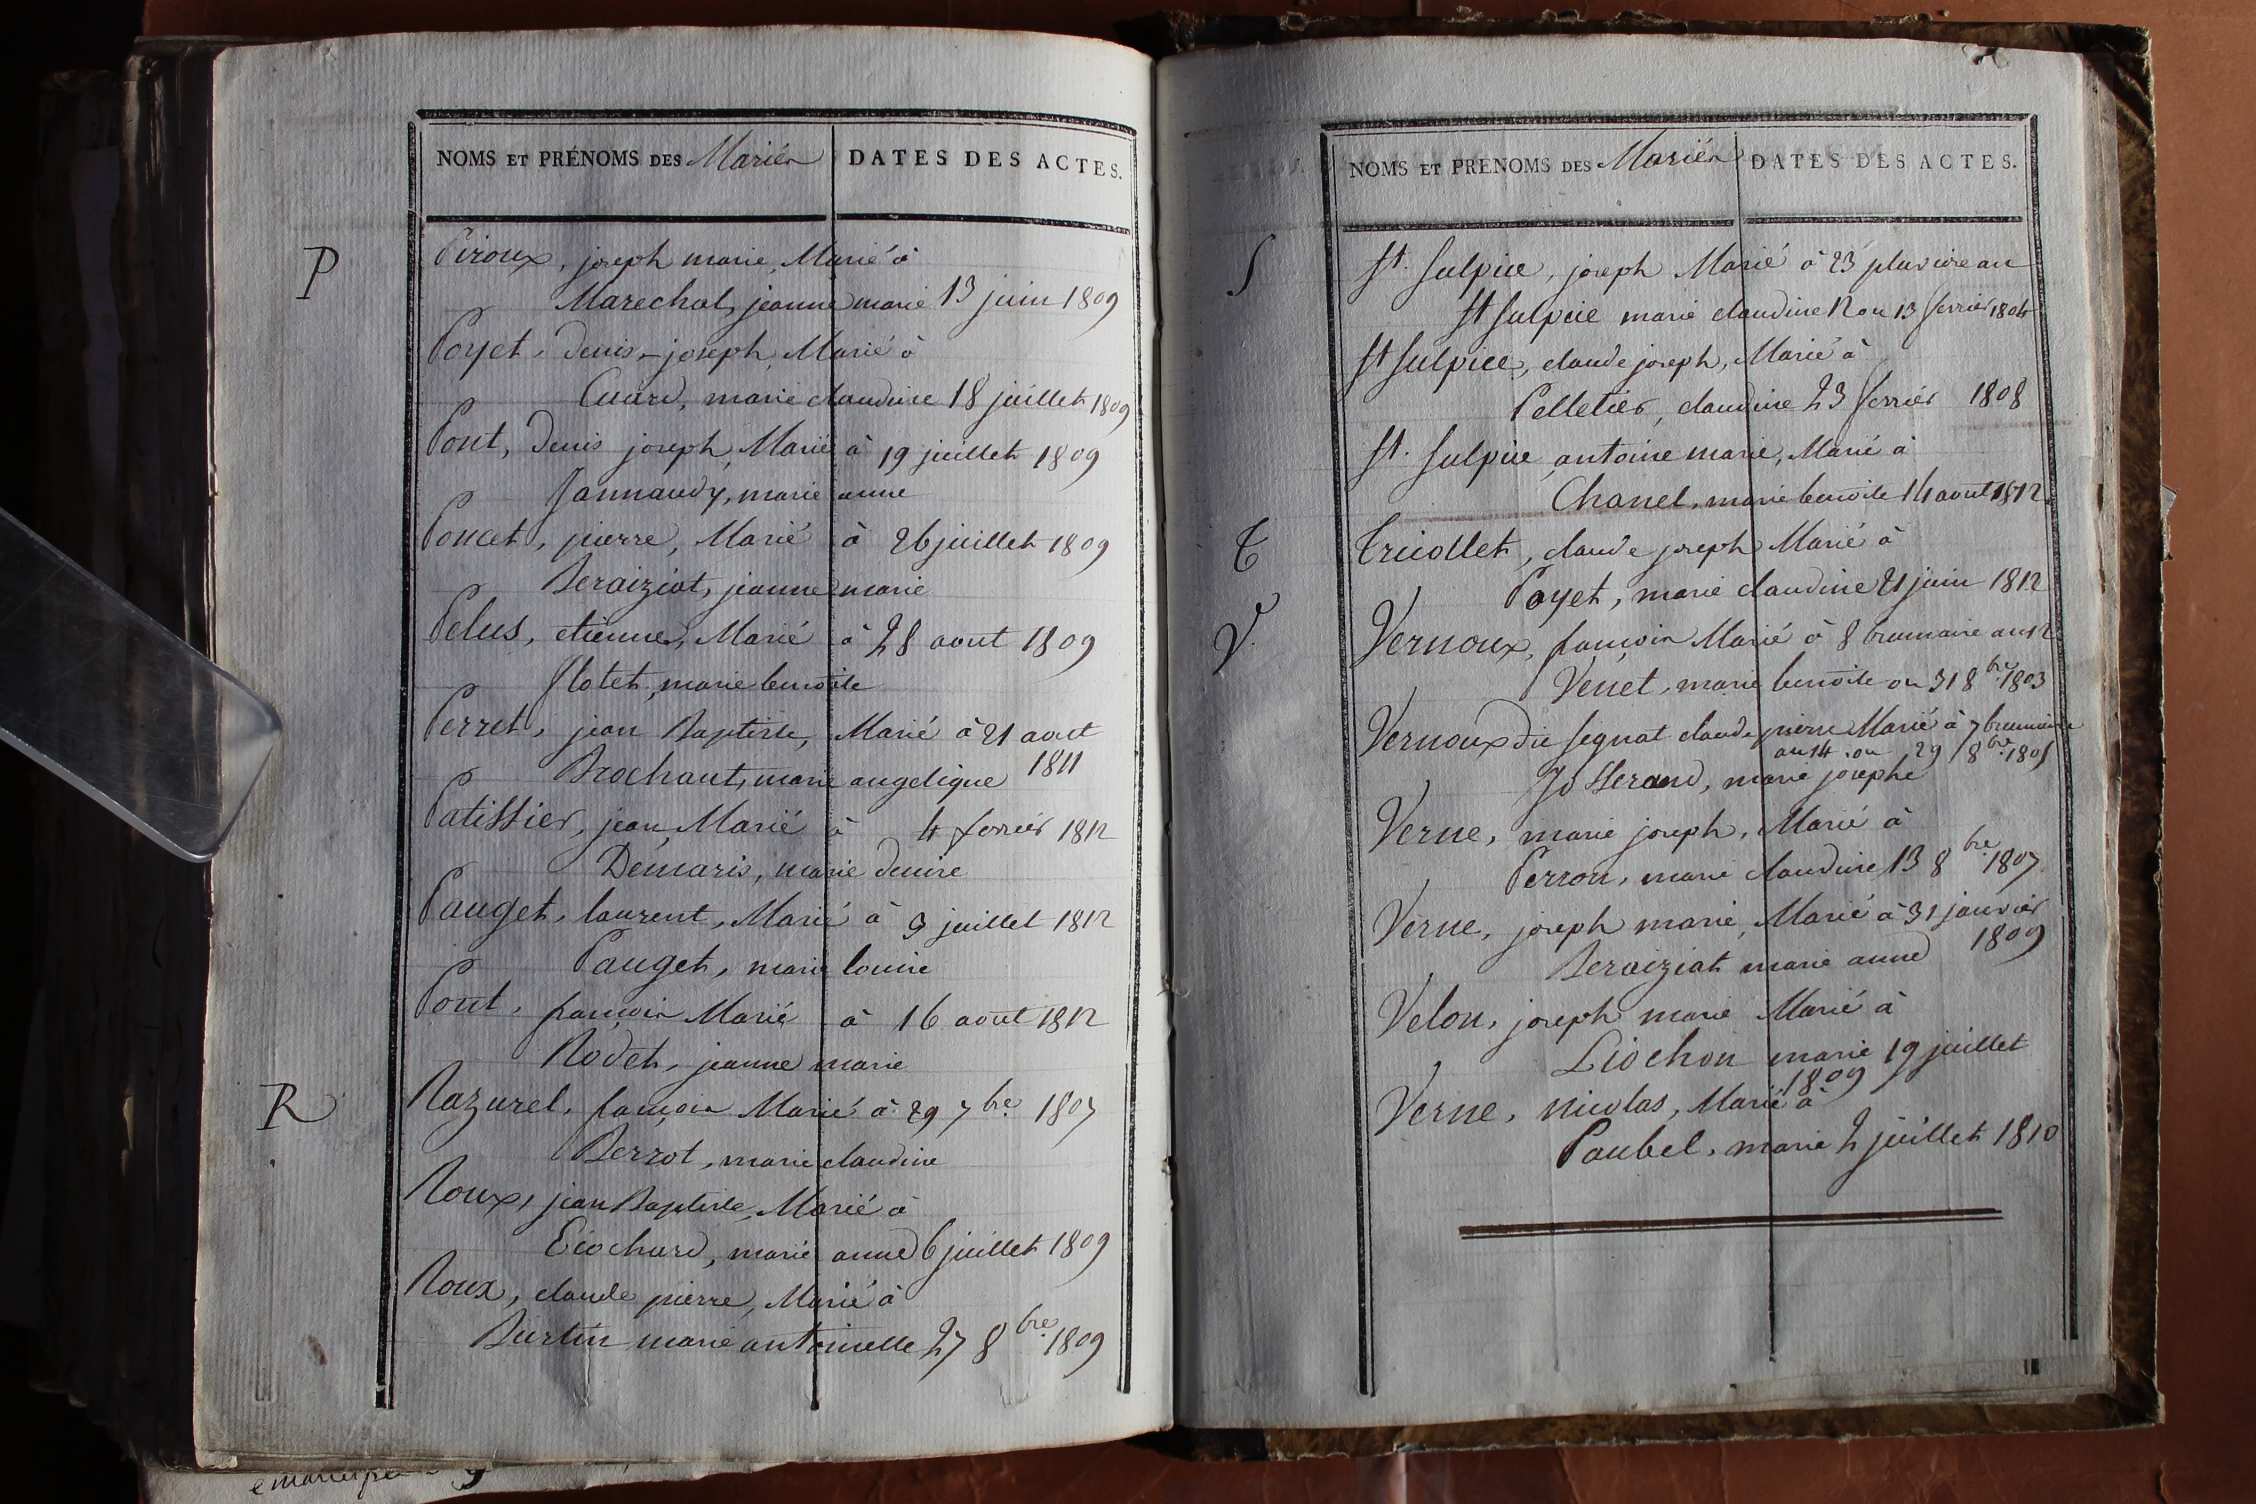 NOMS ET PRÉNOMS DES Mariés DATES DES ACTES.
P
Piroux, joseph marie, Marié à
Marechal, jeanne marie 13 juin 1809
Poyet, denis-joseph, Marié à
Cuard, marie claudine 18 juillet 1809
Pont, Denis joseph, Marié à 19 juillet 1809
Jannaudy, marie anne
Poncet, pierre, Marié à 26 juillet 1809
Beraiziat, jeanne marie
Pelus, etienne, Marié à 28 aout 1809
Flotet, marie benoite
Perret, jean Baptiste, Marié à 21 aout
Brochant, marie angelique 1811
Patissier, jean, Marié à 4 fevrier 1812
Démaris, marie denise
Pauget, laurent, Marié à 9 juillet 1812
Pauget, marie louise
Pont, françois Marié à 16 aout 1812
Rodet, jeanne marie
R
Razurel, françois Marié à 29 7bre 1807
Berrot, marie claudine
Roux, jean Baptiste, Marié à
Eiochard, marie anne 6 juillet 1809
Roux, claude pierre, Marié à
Burtin marie antoinette 27 8bre 1809
NOMS ET PRÉNOMS DES Mariés DATES DES ACTES.
S
St. Sulpice, joseph Marié à 23 pluviose an
St Sulpice marie claudine 12 ou 13 fevrier 1804
St Sulpice, claude joseph, Marié à
Pelletier, claudine 23 fevrier 1808
St. Sulpice antoine marie, Marié à
Chanel, marie benoite 14 aout 1812
T
Tricollet, claude joseph Marié à
Poyet, marie claudine 21 juin 1812
V.
Vernoux, françois Marié à 8 brumaire an 12
Venet, marie benoite ou 31 8bre 1803
Vernoux dit Segnat claude pierre Marié à 7 brumaire
an 14 ou 29 8bre 1805
Josserand, marie josephe
Verne, marie joseph, Marié à
Perron, marie claudine 13 8bre 1807
Verne, joseph marie, Marié à 31 janvier
Beraiziat marie anne 1809
Velon, joseph marie Marié à
Liochon marie 19 juillet
1809
Verne, nicolas, Marié à
Paubel, marie 2 juillet 1810